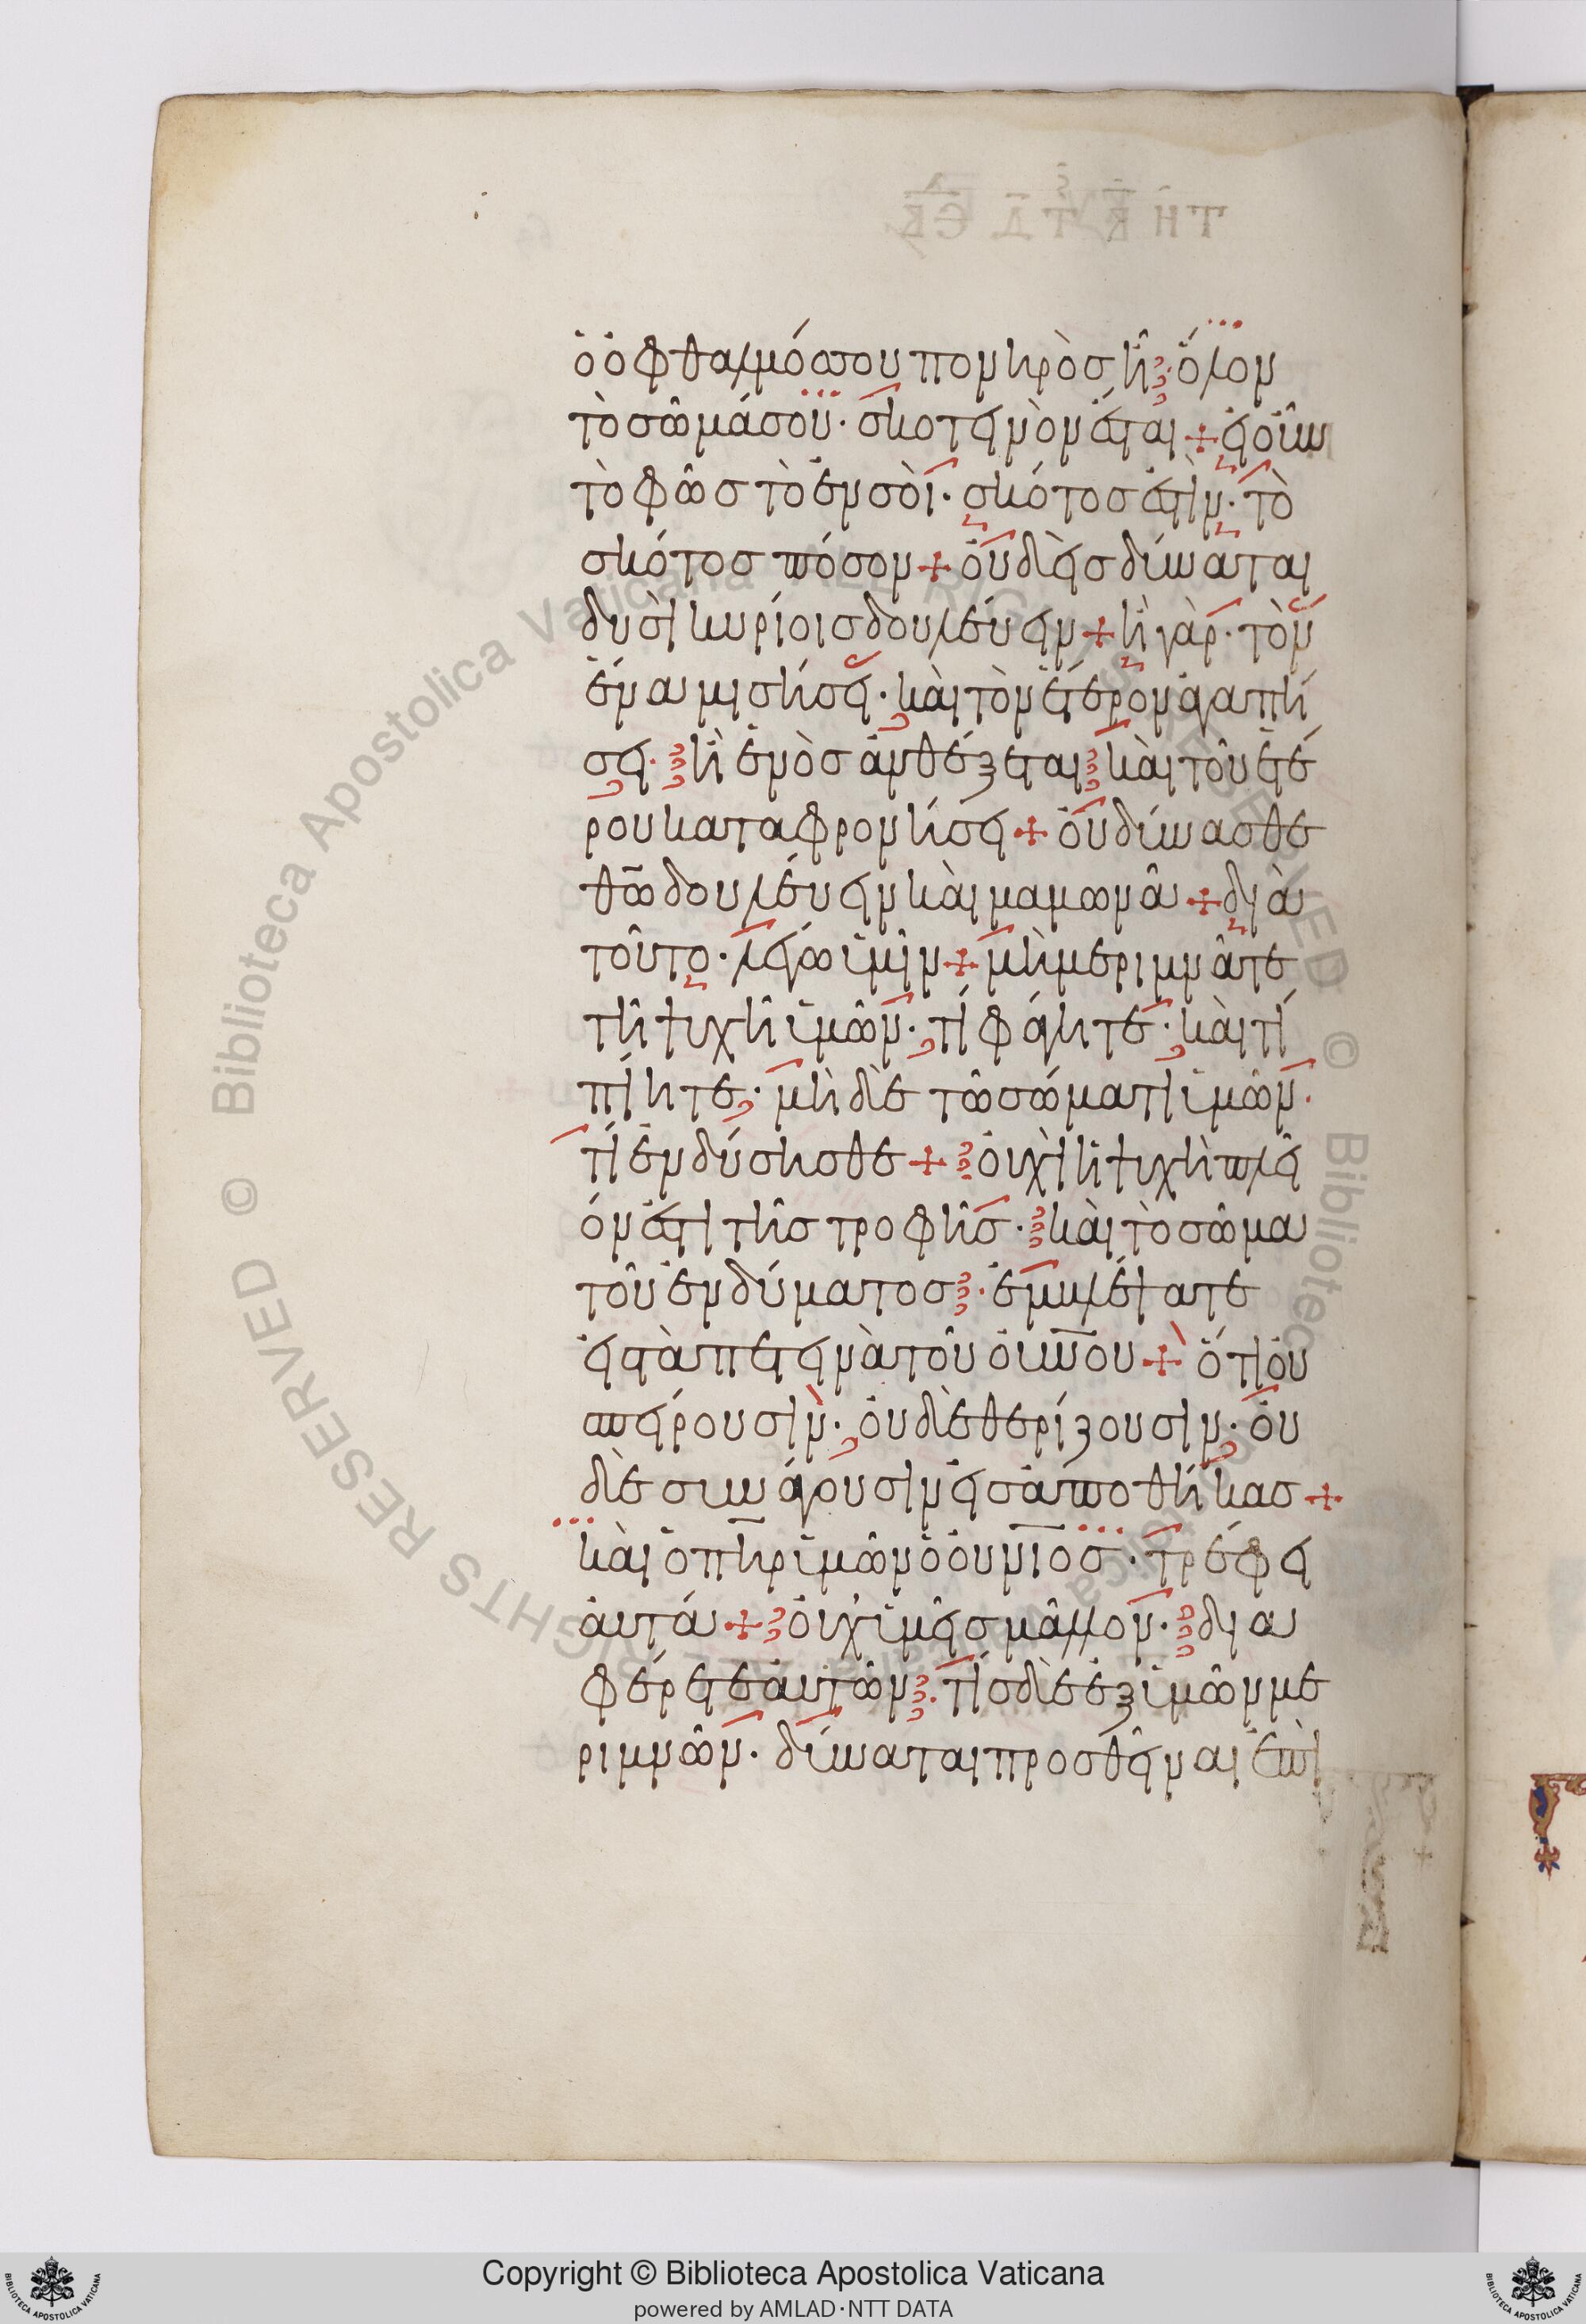 ὁ ὀφθαλμός σου πονηρὸς ῇ· ὅλον
τὸ σῶμά σου· σκοτεινὸν ἔσται + εἰ οὖν
τὸ φῶς τὸ ἐν σοὶ· σκότος ἐστὶν· τὸ
σκότος πόσον + οὐδεὶς δύναται
δυσὶ κυρίοις δουλεύειν + ἢ γὰρ· τὸν
ἕνα μισήσει· καὶ τὸν ἕτερον ἀγαπή
σει· ἢ ἑνὸς ἀνθέξεται καὶ τοῦ ἑτέ
ρου καταφρονήσει + οὐ δύνασθε
θω̅ δουλεύειν καὶ μαμωνᾶ + διὰ
τοῦτο· λέγω ὑμῖν + μὴ μεριμνᾶτε
τῇ ψυχῇ ὑμῶν· τί φάγητε· καὶ τί
πίητε· μηδὲ τῷ σώματι ὑμῶν·
τί ἐνδύσησθε + οὐχὶ ἡ ψυχὴ πλεῖ
όν ἐστι τῆς τροφῆς· καὶ τὸ σῶμα
τοῦ ἐνδύματος· ἐμβλέψατε
εἰς τὰ πετεινὰ τοῦ οὐνου + ὅτι οὐ
σπείρουσιν· οὐδὲ θερίζουσιν· οὐ
δὲ συνάγουσιν εἰς ἀποθήκας +
καὶ ὁ πηρ ὑμῶν ὁ οὐνιος· τρέφει
αὐτά + οὐχ ὑμεῖς μᾶλλον· δια
φέρετε αὐτῶν· τίς δὲ ἐξ ὑμῶν με
ριμνῶν· δύναται προσθεῖναι ἐπὶ
© Biblioteca Apostolica Vaticana ALL RIGHTS RESERVED © Biblioteca Apostolica Vaticana ALL RIGHTS RESERVED
Copyright © Biblioteca Apostolica Vaticana
powered by AMLAD·NTT DATA
BIBLIOTECA APOSTOLICA VATICANA
BIBLIOTECA APOSTOLICA VATICANA